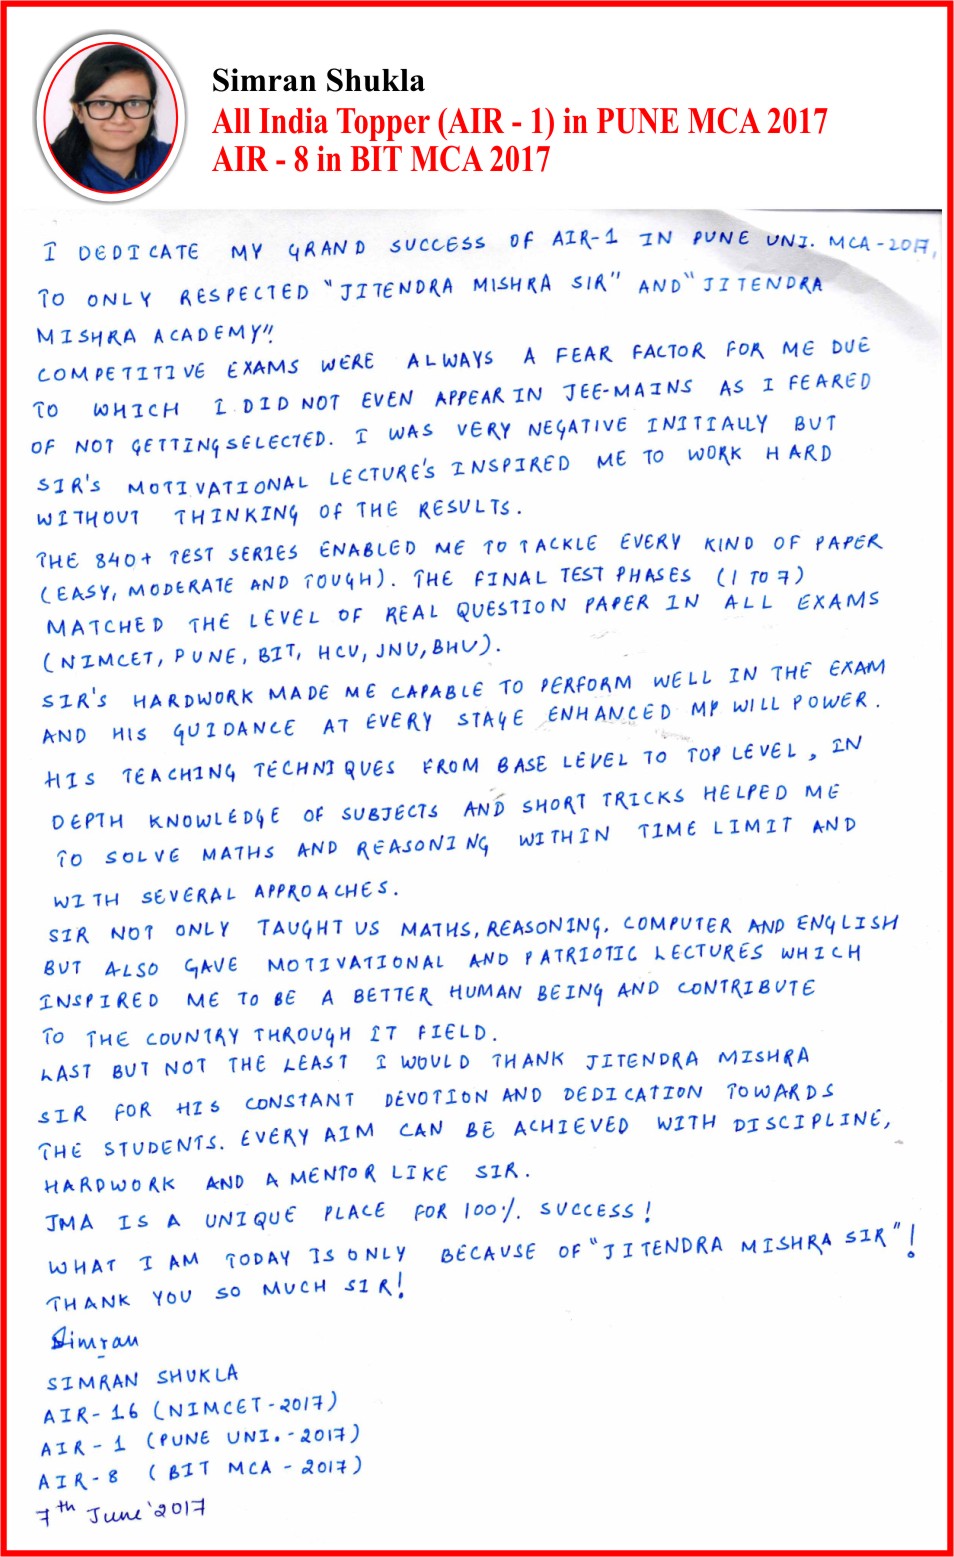 Simran Shukla
All India Topper (AIR - 1) in PUNE MCA 2017
AIR - 8 in BIT MCA 2017
I DEDICATE MY GRAND SUCCESS OF AIR-1 IN PUNE UNI. MCA-2017,
TO ONLY RESPECTED "JITENDRA MISHRA SIR" AND "JITENDRA
MISHRA ACADEMY".
COMPETITIVE EXAMS WERE ALWAYS A FEAR FACTOR FOR ME DUE
TO WHICH I DID NOT EVEN APPEAR IN JEE-MAINS AS I FEARED
OF NOT GETTING SELECTED. I WAS VERY NEGATIVE INITIALLY BUT
SIR'S MOTIVATIONAL LECTURE'S INSPIRED ME TO WORK HARD
WITHOUT THINKING OF THE RESULTS.
THE 840+ TEST SERIES ENABLED ME TO TACKLE EVERY KIND OF PAPER
(EASY, MODERATE AND TOUGH). THE FINAL TEST PHASES (1 TO 7)
MATCHED THE LEVEL OF REAL QUESTION PAPER IN ALL EXAMS
(NIMCET, PUNE, BIT, HCU, JNU, BHU).
SIR'S HARDWORK MADE ME CAPABLE TO PERFORM WELL IN THE EXAM
AND HIS GUIDANCE AT EVERY STAGE ENHANCED MY WILL POWER.
HIS TEACHING TECHNIQUES FROM BASE LEVEL TO TOP LEVEL, IN
DEPTH KNOWLEDGE OF SUBJECTS AND SHORT TRICKS HELPED ME
TO SOLVE MATHS AND REASONING WITHIN TIME LIMIT AND
WITH SEVERAL APPROACHES.
SIR NOT ONLY TAUGHT US MATHS, REASONING, COMPUTER AND ENGLISH
BUT ALSO GAVE MOTIVATIONAL AND PATRIOTIC LECTURES WHICH
INSPIRED ME TO BE A BETTER HUMAN BEING AND CONTRIBUTE
TO THE COUNTRY THROUGH IT FIELD.
LAST BUT NOT THE LEAST I WOULD THANK JITENDRA MISHRA
SIR FOR HIS CONSTANT DEVOTION AND DEDICATION TOWARDS
THE STUDENTS. EVERY AIM CAN BE ACHIEVED WITH DISCIPLINE,
HARDWORK AND A MENTOR LIKE SIR.
JMA IS A UNIQUE PLACE FOR 100% SUCCESS!
WHAT I AM TODAY IS ONLY BECAUSE OF "JITENDRA MISHRA SIR"!
THANK YOU SO MUCH SIR!
Simran
SIMRAN SHUKLA
AIR-16 (NIMCET-2017)
AIR-1 (PUNE UNI.-2017)
AIR-8 (BIT MCA-2017)
7th June'2017